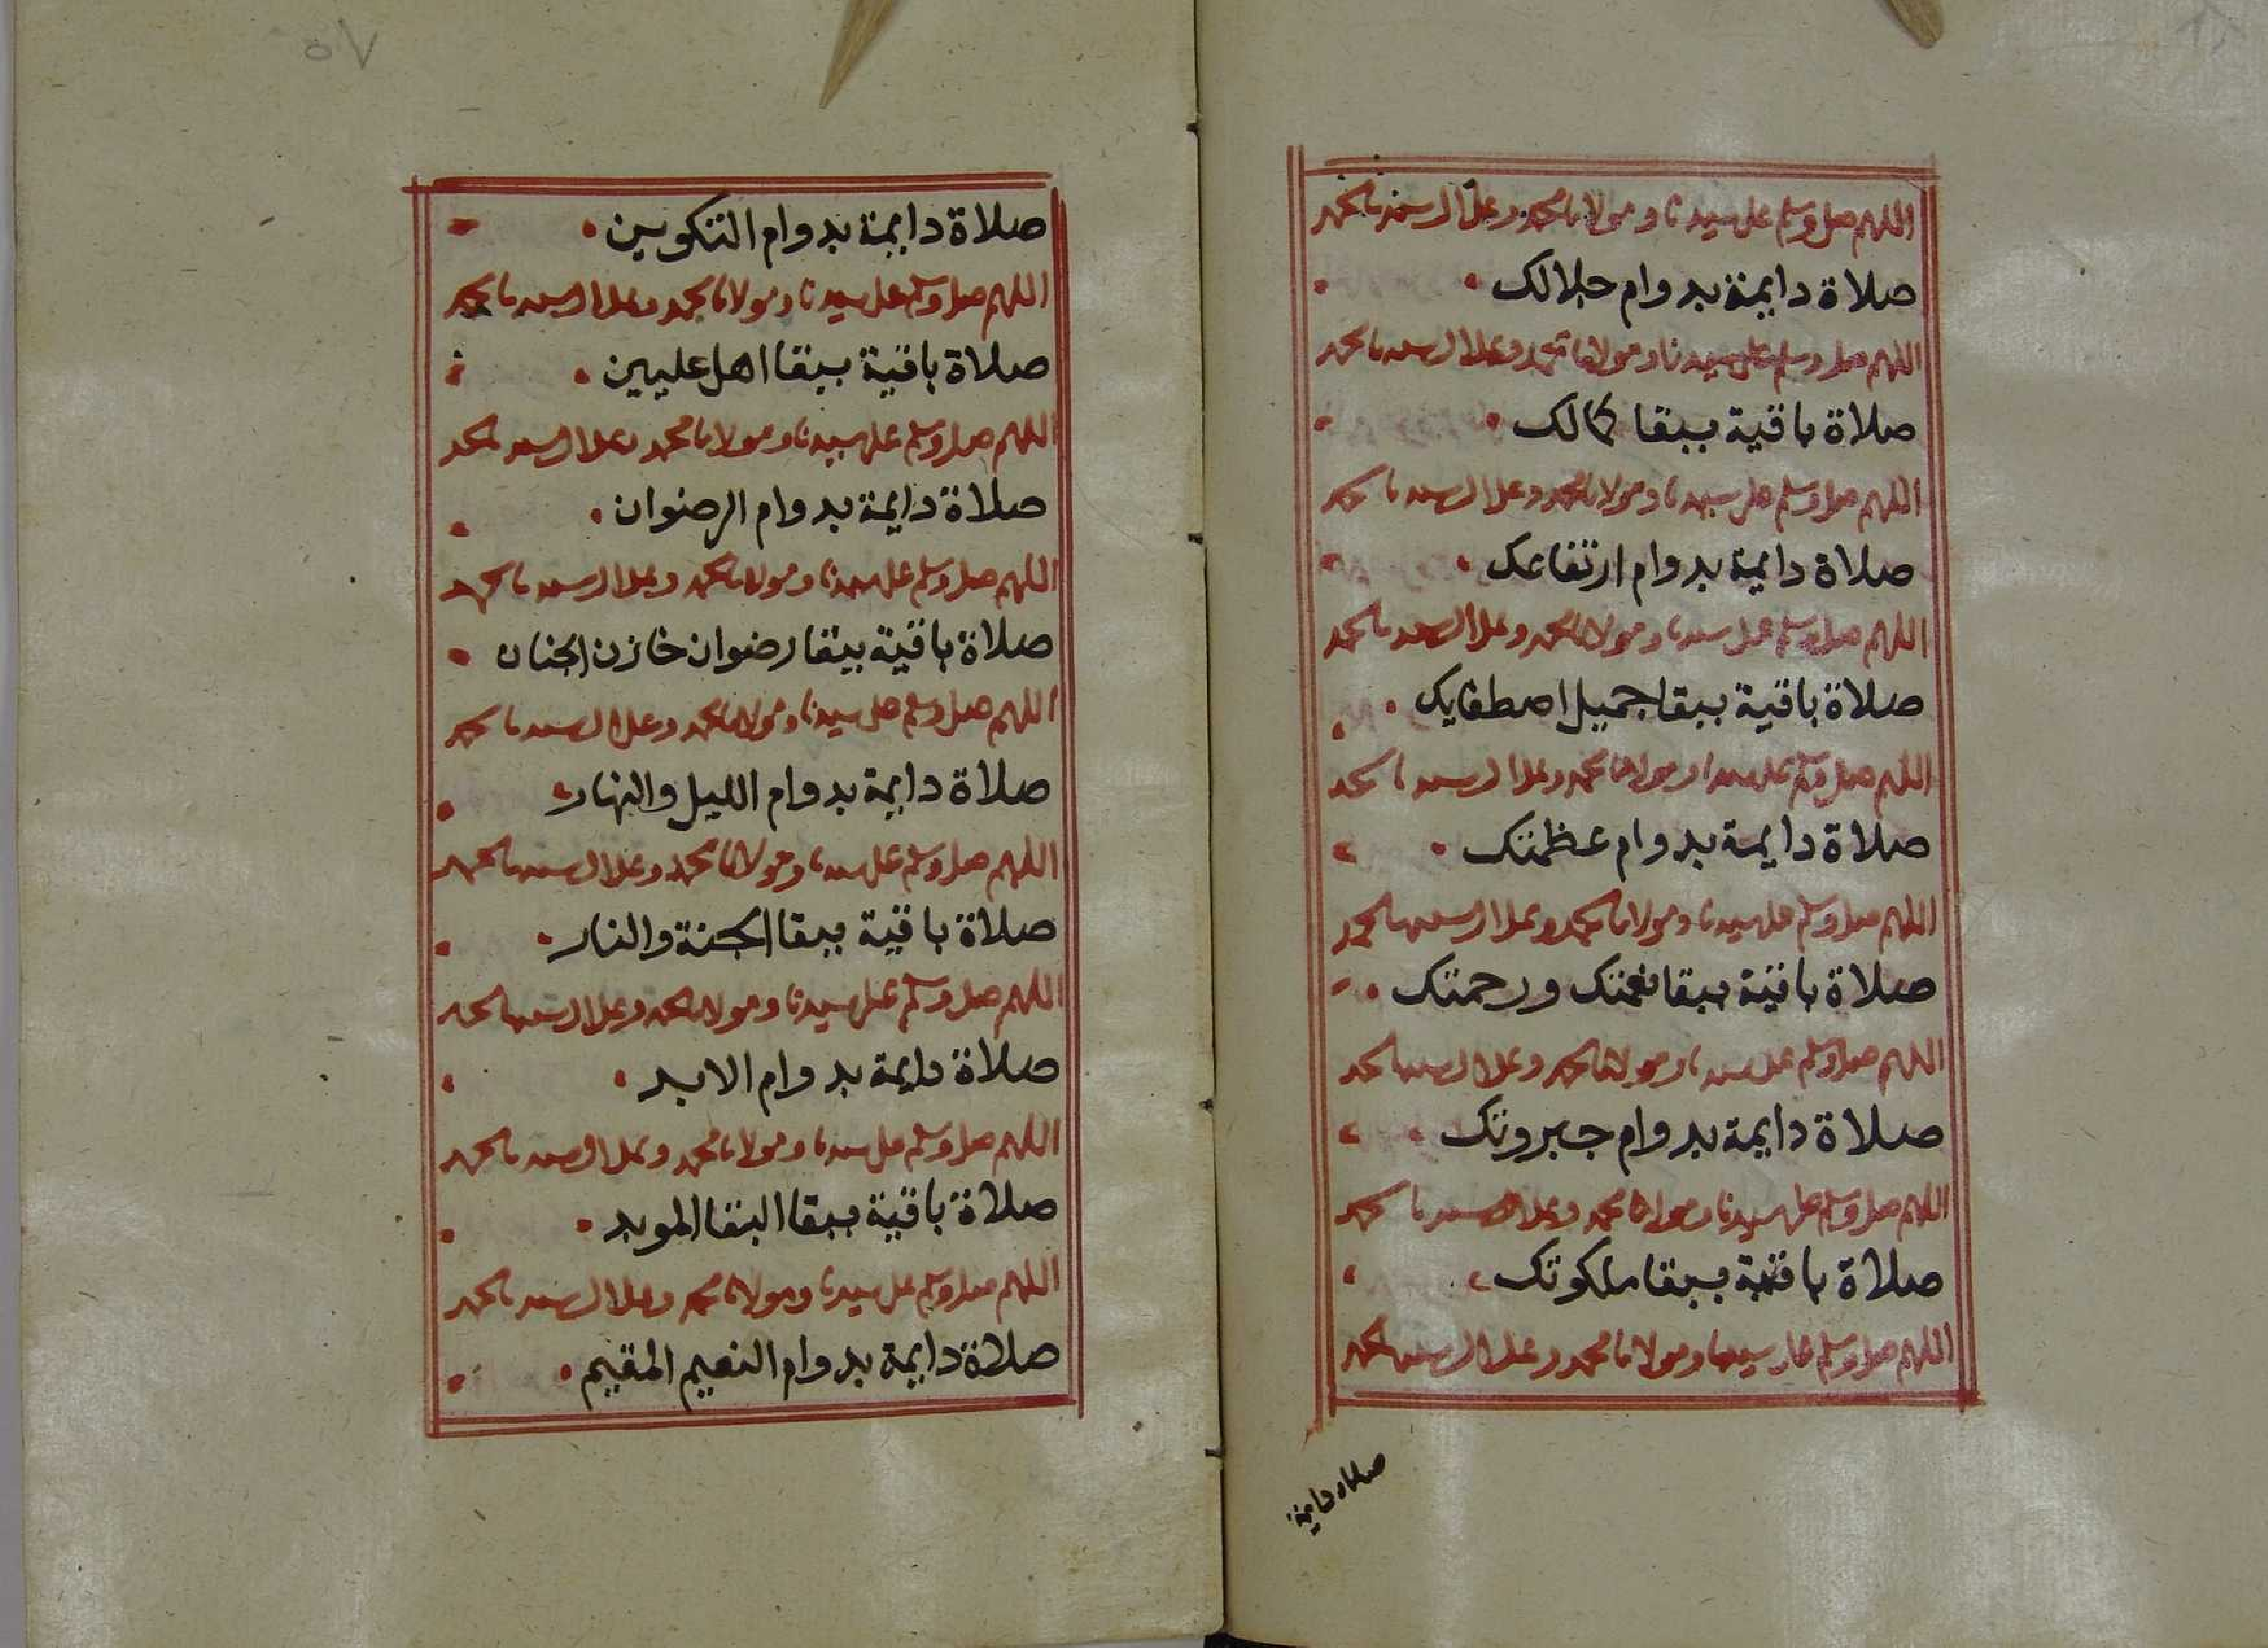 اللهم صل وسلم على سيدنا ومولانا محمد وعلى ال سيدنا محمد
صلاة دايمة بدوام جلالك
اللهم صل وسلم على سيدنا ومولانا محمد وعلى ال سيدنا محمد
صلاة باقية ببقا كمالك
اللهم صل وسلم على سيدنا ومولانا محمد وعلى ال سيدنا محمد
صلاة دايمة بدوام ارتفاعك
اللهم صل وسلم على سيدنا ومولانا محمد وعلى ال سيدنا محمد
صلاة باقية ببقا جميل اصطفايك
اللهم صل وسلم على سيدنا ومولانا محمد وعلى ال سيدنا محمد
صلاة دايمة بدوام عظمتك
اللهم صل وسلم على سيدنا ومولانا محمد وعلى ال سيدنا محمد
صلاة باقية ببقا نعمتك ورحمتك
اللهم صل وسلم على سيدنا ومولانا محمد وعلى ال سيدنا محمد
صلاة دايمة بدوام جبروتك
اللهم صل وسلم على سيدنا ومولانا محمد وعلى ال سيدنا محمد
صلاة باقية ببقا ملكوتك
اللهم صل وسلم على سيدنا ومولانا محمد وعلى ال سيدنا محمد
صلاة دايمة
٥٧
صلاة دايمة بدوام التكوين
اللهم صل وسلم على سيدنا ومولانا محمد وعلى ال سيدنا محمد
صلاة باقية ببقا اهل عليين
اللهم صل وسلم على سيدنا ومولانا محمد وعلى ال سيدنا محمد
صلاة دايمة بدوام الرضوان
اللهم صل وسلم على سيدنا ومولانا محمد وعلى ال سيدنا محمد
صلاة باقية ببقا رضوان خازن الجنان
اللهم صل وسلم على سيدنا ومولانا محمد وعلى ال سيدنا محمد
صلاة دايمة بدوام الليل والنهار
اللهم صل وسلم على سيدنا ومولانا محمد وعلى ال سيدنا محمد
صلاة باقية ببقا الجنة والنار
اللهم صل وسلم على سيدنا ومولانا محمد وعلى ال سيدنا محمد
صلاة دايمة بدوام الابد
اللهم صل وسلم على سيدنا ومولانا محمد وعلى ال سيدنا محمد
صلاة باقية ببقا البقا الموبد
اللهم صل وسلم على سيدنا ومولانا محمد وعلى ال سيدنا محمد
صلاة دايمة بدوام النعيم المقيم